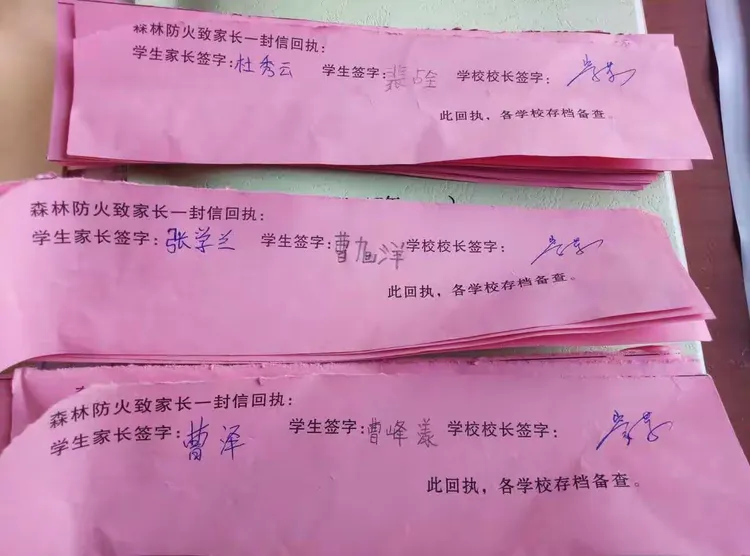 森林防火致家长一封信回执:
学生家长签字:杜秀云 学生签字: 学校校长签字:
此回执，各学校存档备查。
森林防火致家长一封信回执:
学生家长签字:张学兰 学生签字:曹旭洋 学校校长签字:
此回执，各学校存档备查。
森林防火致家长一封信回执:
学生家长签字:曹泽 学生签字:曹峰漾 学校校长签字:
此回执，各学校存档备查。